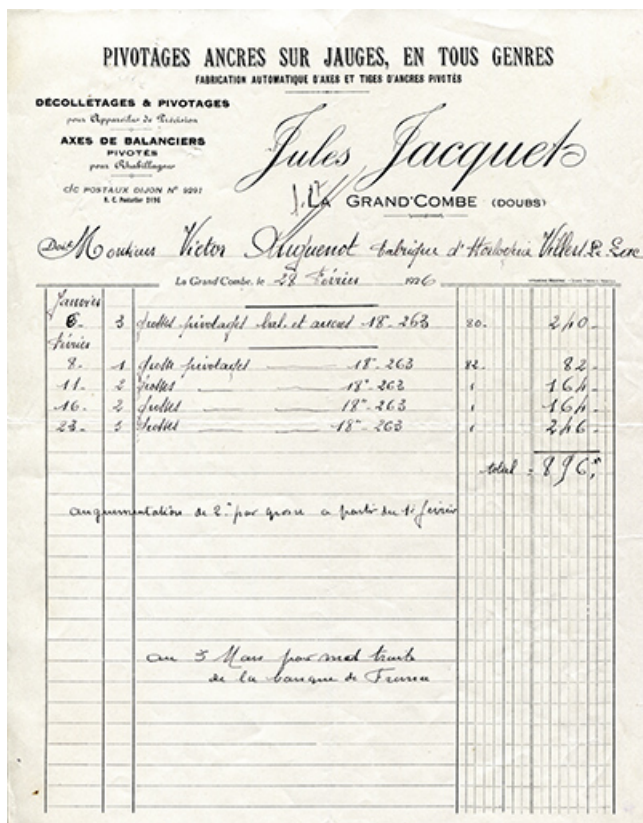 PIVOTAGES ANCRES SUR JAUGES, EN TOUS GENRES
FABRICATION AUTOMATIQUE D'AXES ET TIGES D'ANCRES PIVOTÉS
DÉCOLLETAGES & PIVOTAGES
pour Appareils de Précision
AXES DE BALANCIERS
PIVOTÉS
pour Rhabillages
C/C POSTAUX DIJON N° 9291
R. C. Pontarlier
Jules Jacquet
LA GRAND'COMBE (DOUBS)
Doit Monsieur Victor Huguenot fabrique d'Horlogerie Villers Le
La Grand'Combe, le 28 Février 1926
Janvier
6. 3 grosses pivotages bal. et ancres 18-263 80. 240-
Février
8. 1 grosse pivotages 18"-263 82. 82-
11. 2 grosses 18"-263 164-
16. 2 grosses 18"-263 164-
23. 3 grosses 18"-263 246-
total = 896,
augmentation de 2. par grosse a partir du 1 février
au 3 Mars par traite
de la banque de France